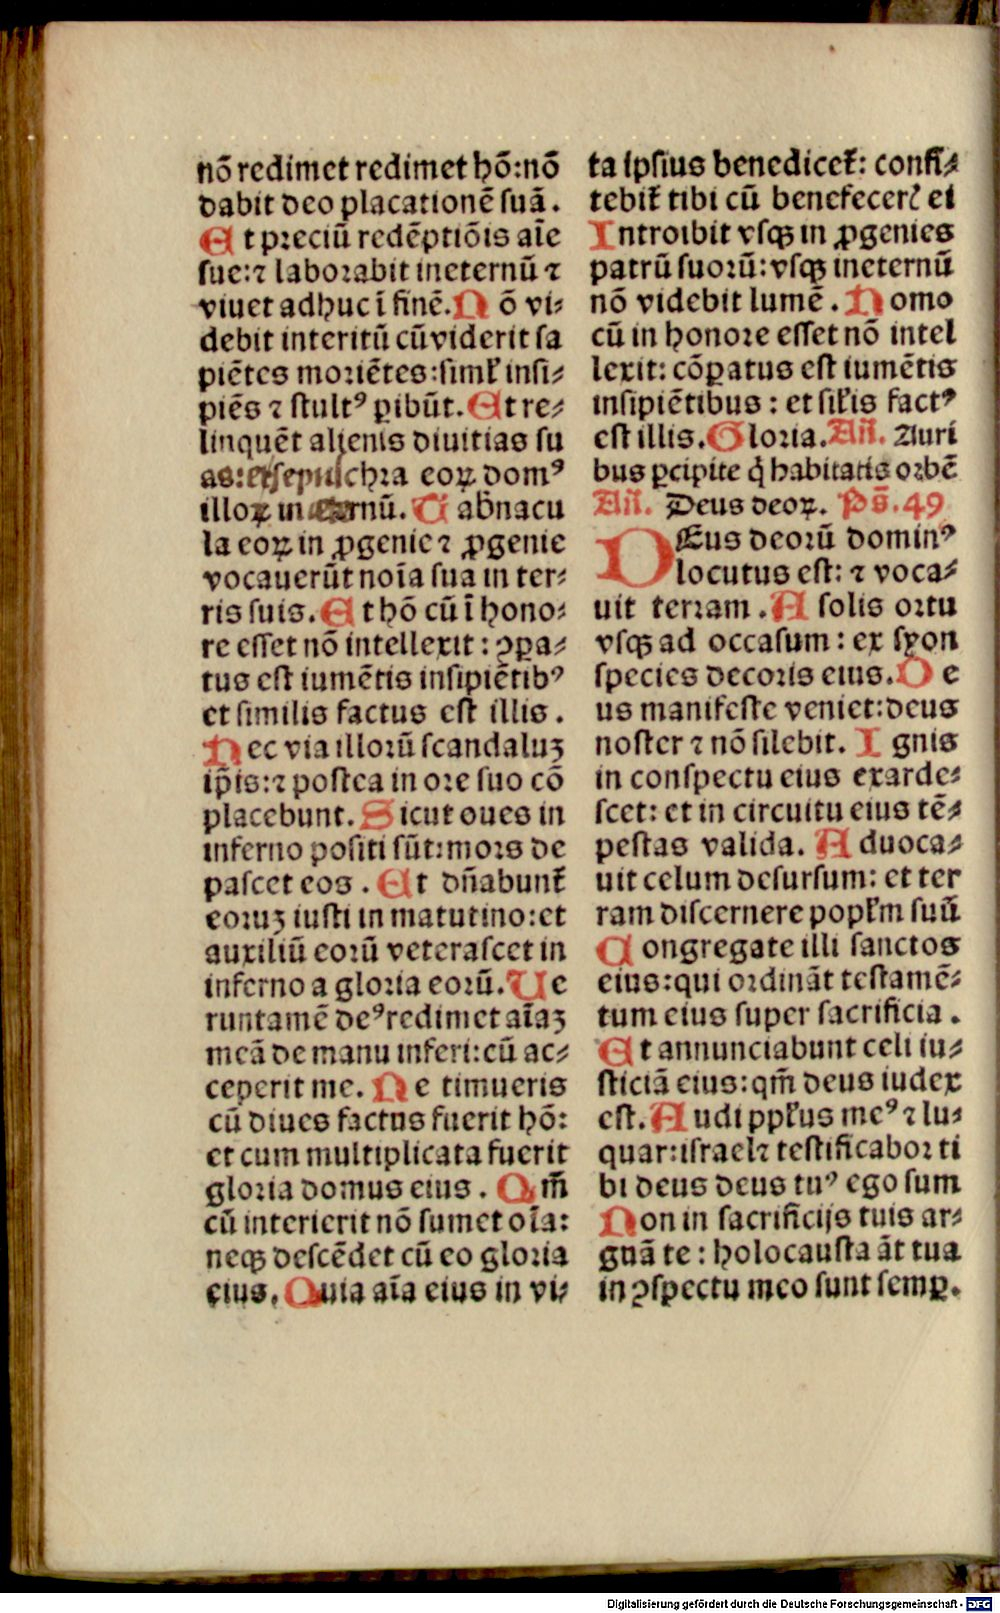 nō redimet redimet hō: nō
dabit deo placationē suā.
Et preciū redēptiōis aīe
sue: ⁊ laborabit ineternū ⁊
viuet adhuc ī finē. Nō vi⸗
debit interitū cū viderit sa
piētes moriētes: simł insi⸗
piēs ⁊ stultꝰ ꝑibūt. Et re⸗
linquēt alienis diuitias su
as: et sepulchra eoꝝ domꝰ
illoꝝ in eternū. Tabnacu
la eoꝝ in ꝓgenie ⁊ ꝓgenie
vocauerūt noīa sua in ter⸗
ris suis. Et hō cū ī hono⸗
re esset nō intellexit: ꝯꝑa⸗
tus est iumētis insipiētibꝰ
et similis factus est illis.
Nec via illorū scandaluꝫ
ip̄is: ⁊ postea in ore suo cō
placebunt. Sicut oues in
inferno positi sūt: mors de
pascet eos. Et dn̄abunt̄
eoruꝫ iusti in matutino: et
auxiliū eorū veterascet in
inferno a gloria eorū. Ve
runtamē deꝰ redimet aīaꝫ
meā de manu inferi: cū ac⸗
ceperit me. Ne timueris
cū diues factus fuerit hō:
et cum multiplicata fuerit
gloria domus eius. Qm̄
cū interierit nō sumet oīa:
neqꝫ descēdet cū eo gloria
eius. Quia aīa eius in vi⸗
ta ipsius benedicet̄: confi⸗
tebit̄ tibi cū benefecer̄ ei
Introibit vsqꝫ in ꝓgenies
patrū suorū: vsqꝫ ineternū
nō videbit lumē. Homo
cū in honore esset nō intel
lexit: cōꝑatus est iumētis
insipiētibus: et siłis factꝰ
est illis. Gloria. Añ. Auri
bus ꝑcipite q̄ habitatis orbē
Añ. Deus deoꝝ. Ps̄. 49
DEus deorū dominꝰ
locutus est: ⁊ voca⸗
uit terram. A solis ortu
vsqꝫ ad occasum: ex syon
species decoris eius. De
us manifeste veniet: deus
noster ⁊ nō silebit. Ignis
in conspectu eius exarde⸗
scet: et in circuitu eius tē⸗
pestas valida. Aduoca⸗
uit celum desursum: et ter
ram discernere popłm suū
Congregate illi sanctos
eius: qui ordināt testamē⸗
tum eius super sacrificia.
Et annunciabunt celi iu⸗
sticiā eius: qm̄ deus iudex
est. Audi ppłus meꝰ ⁊ lo⸗
quar: israel ⁊ testificabor ti
bi deus deus tuꝰ ego sum
Non in sacrificijs tuis ar⸗
guā te: holocausta āt tua
in ꝯspectu meo sunt semꝑ.
Digitalisierung gefördert durch die Deutsche Forschungsgemeinschaft - DFG